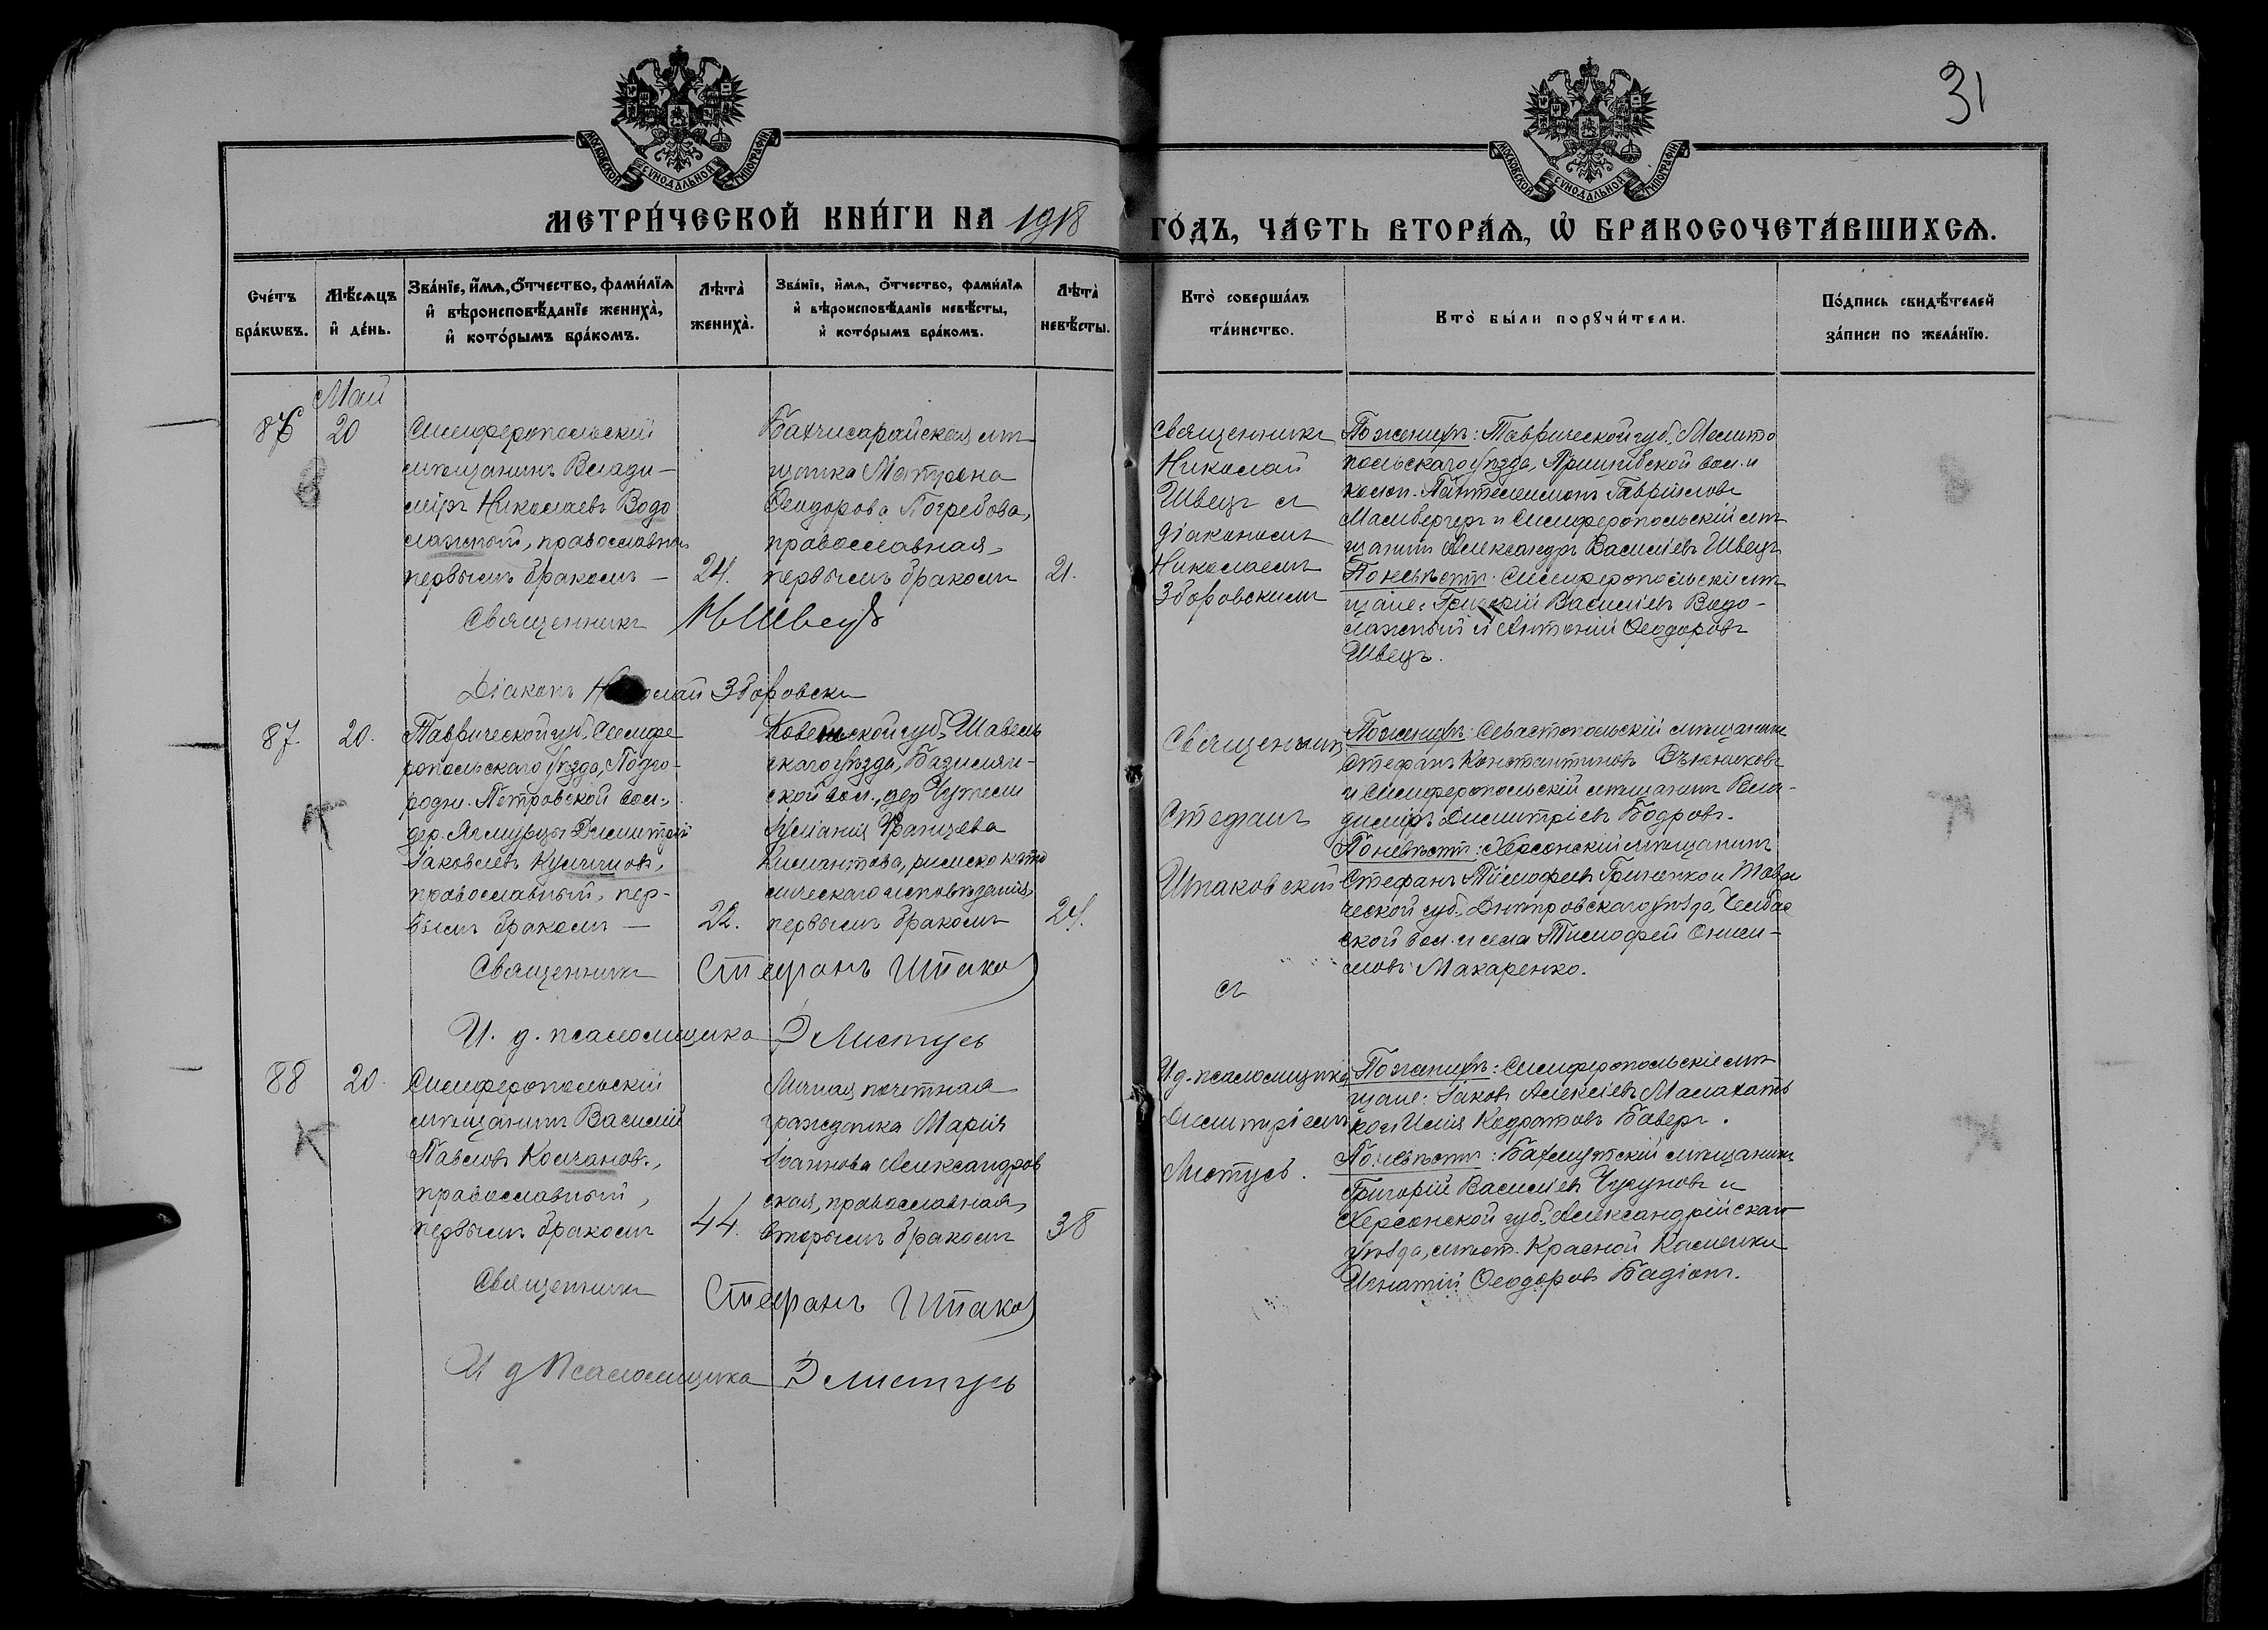 31
МОСКОВСКОЙ СѴНОДАЛЬНОЙ ТИПОГРАФІИ
МОСКОВСКОЙ СѴНОДАЛЬНОЙ ТИПОГРАФІИ
МЕТРИ́ЧЕСКОЙ КНИ́ГИ НА 1918 ГО́ДЪ, ЧА́СТЬ ВТОРА́Ѧ, Ѡ҆ БРАКОСОЧЕТА́ВШИХСѦ.
Сче́тъ бра́кѡвъ.
Мѣ́сяцъ и҆ де́нь.
Зва́нїе, и҆́мя, ѻ҆́тчество, фами́лїя и҆ вѣроисповѣ́данїе жениха̀, и҆ кото́рымъ бра́комъ.
Лѣта̀ жениха̀.
Зва́нїе, и҆́мя, ѻ҆́тчество, фами́лїя и҆ вѣроисповѣ́данїе невѣ́сты, и҆ кото́рымъ бра́комъ.
Лѣта̀ невѣ́сты.
Кто̀ соверша́лъ та́инство.
Кто̀ бы́ли порꙋчи́тели.
По́дпись свидѣ́телей за́писи по жела́нїю.
Май
86
20
Симферопольскій
мѣщанинъ Влади-
міръ Николаевъ Водо
лажскій, православный
первымъ бракомъ —
24.
Бахчисарайская мѣ
щанка Матрона
Ѳеодорова Погребова,
православная,
первымъ бракомъ
21.
Священникъ
Николай
Швецъ съ
діакономъ
Николаемъ
Зборовскимъ
По женихѣ: Таврической губ., Мелито
польскаго уѣзда, Пришибской вол. и
колон. Пантелеимонъ Гавріиловъ
Мальбергеръ и Симферопольскій мѣ
щанинъ Александръ Василіевъ Швецъ
По невѣстѣ: Симферопольскіе мѣ
щане: Григорій Василіевъ Водо-
лажскій и Антоній Ѳеодоровъ
Швецъ.
Священникъ Н Швецъ
Діаконъ Николай Зборовски
87.
20.
Таврической губ., Симфе
ропольскаго уѣзда, Подго-
родн. Петровской вол.,
дер. Димитрій
Іаковлевъ
православный, пер-
вымъ бракомъ —
22.
Ковенской губ., Шавель
скаго уѣзда,
ской вол., дер
Францева
римско като
лическаго исповѣданія,
первымъ бракомъ
24.
Священникъ
Стефанъ
Шпаковскій
съ
И. д. псаломщика
Димитріемъ
Листусъ.
По женихѣ: Севастопольскій мѣщанинъ
Стефанъ Константиновъ Вьюнниковъ
и Симферопольскій мѣщанинъ Вла-
диміръ Димитріевъ Бодровъ.
По невѣстѣ: Херсонскій мѣщанинъ
Стефанъ Тимофеевъ Гриненко и Таври
ческой губ., Днѣпровскаго уѣзда, Челбас
ской вол. и села Тимофей
Макаренко.
Священникъ Стефанъ Шпаков
И. д. псаломщика Д Листусъ
88
20.
Симферопольскій
мѣщанинъ Василій
Павловъ Колчановъ,
православный,
первымъ бракомъ
44.
Личная почетная
гражданка Марія
Іоаннова Александров
ская, православная,
вторымъ бракомъ
38
По женихѣ: Симферопольскіе мѣ
щане: Іаковъ Алексіевъ
и Илія Кодратовъ Баверъ.
По невѣстѣ: Бахмутскій мѣщанинъ
Григорій Василіевъ Чугуновъ и
Херсонской губ., Александрійскаго
уѣзда, мѣст. Красной Каменки
Игнатій Ѳеодоровъ
Священникъ Стефанъ Шпаков
И д Псаломщика Д Листусъ